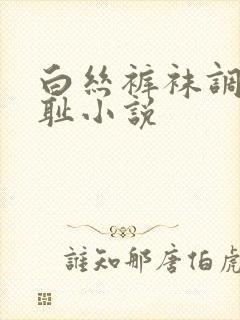 白丝裤袜調
耻小说
誰知那唐伯虎